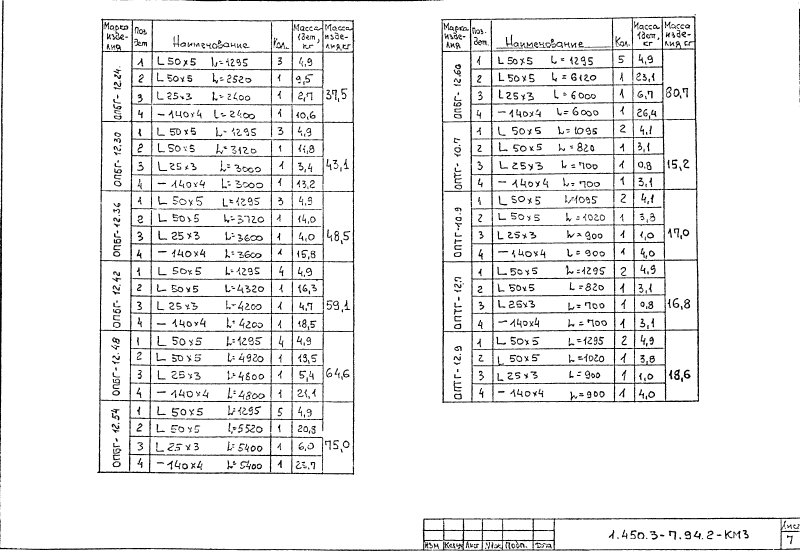 Марка изделия Поз. дет. Наименование Кол. Масса 1 дет., кг Масса изделия, кг
ОПБГ-12.24 37,5
1 L 50×5 L=1295 3 4,9
2 L 50×5 L=2520 1 9,5
3 L 25×3 L=2400 1 2,7
4 — 140×4 L=2400 1 10,6
ОПБГ-12.30 43,1
1 L 50×5 L=1295 3 4,9
2 L 50×5 L=3120 1 11,8
3 L 25×3 L=3000 1 3,4
4 — 140×4 L=3000 1 13,2
ОПБГ-12.36 48,5
1 L 50×5 L=1295 3 4,9
2 L 50×5 L=3720 1 14,0
3 L 25×3 L=3600 1 4,0
4 — 140×4 L=3600 1 15,8
ОПБГ-12.42 59,1
1 L 50×5 L=1295 4 4,9
2 L 50×5 L=4320 1 16,3
3 L 25×3 L=4200 1 4,7
4 — 140×4 L=4200 1 18,5
ОПБГ-12.48 64,6
1 L 50×5 L=1295 4 4,9
2 L 50×5 L=4920 1 18,5
3 L 25×3 L=4800 1 5,4
4 — 140×4 L=4800 1 21,1
ОПБГ-12.54 75,0
1 L 50×5 L=1295 5 4,9
2 L 50×5 L=5520 1 20,8
3 L 25×3 L=5400 1 6,0
4 — 140×4 L=5400 1 23,7
Марка изделия Поз. дет. Наименование Кол. Масса 1 дет, кг Масса изделия, кг
ОПБГ-12.60 80,7
1 L 50×5 L=1295 5 4,9
2 L 50×5 L=6120 1 23,1
3 L 25×3 L=6000 1 6,7
4 — 140×4 L=6000 1 26,4
ОПТГ-10.7 15,2
1 L 50×5 L=1095 2 4,1
2 L 50×5 L=820 1 3,1
3 L 25×3 L=700 1 0,8
4 — 140×4 L=700 1 3,1
ОПТГ-10.9 17,0
1 L 50×5 L=1095 2 4,1
2 L 50×5 L=1020 1 3,8
3 L 25×3 L=900 1 1,0
4 — 140×4 L=900 1 4,0
ОПТГ-12.7 16,8
1 L 50×5 L=1295 2 4,9
2 L 50×5 L=820 1 3,1
3 L 25×3 L=700 1 0,8
4 — 140×4 L=700 1 3,1
ОПТГ-12.9 18,6
1 L 50×5 L=1295 2 4,9
2 L 50×5 L=1020 1 3,8
3 L 25×3 L=900 1 1,0
4 — 140×4 L=900 1 4,0
Изм Кол.уч Лист №док Подп. Дата
1.450.3-7.94.2-КМ3
Лист
7